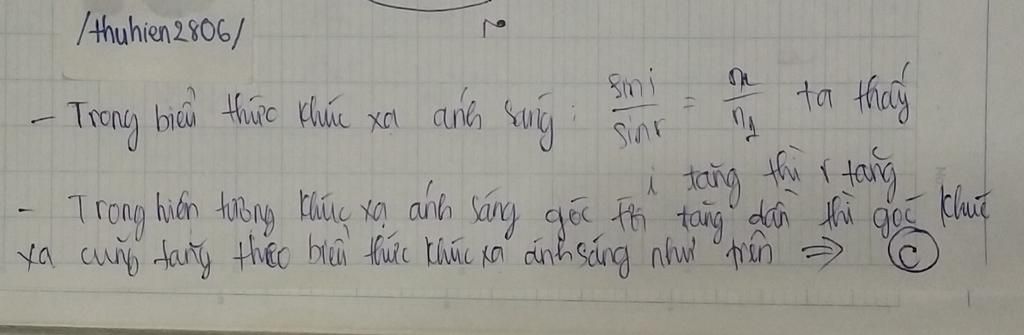 /thuhien2806/
- Trong biểu thức khúc xạ ánh sáng: sini/sinr = n₂/n₁ ta thấy
i tăng thì r tăng
- Trong hiện tượng khúc xạ ánh sáng góc tới tăng dần thì góc khúc
xạ cũng tăng theo biểu thức khúc xạ ánh sáng như trên ⇒ C